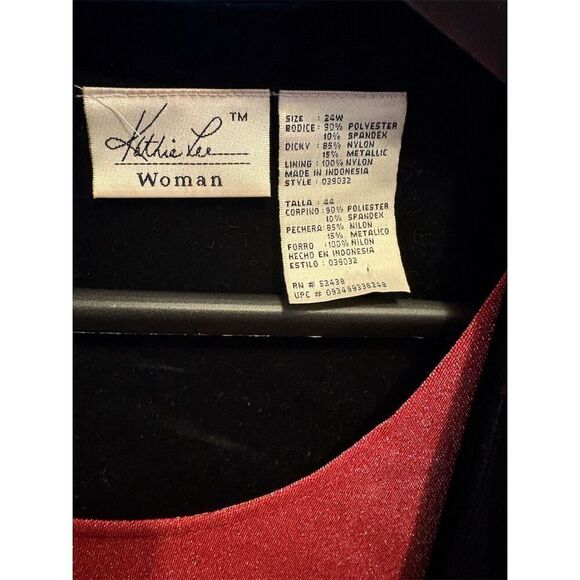 Kathie Lee TM
Woman
SIZE : 24W
BODICE : 90% POLYESTER
10% SPANDEX
DICKY : 85% NYLON
15% METALLIC
LINING : 100% NYLON
MADE IN INDONESIA
STYLE : 039032
TALLA : 44
CORPINO : 90% POLIESTER
10% SPANDEX
PECHERA : 85% NILON
15% METALICO
FORRO : 100% NILON
HECHO EN INDONESIA
ESTILO : 039032
RN # 52438
UPC # 093499338248